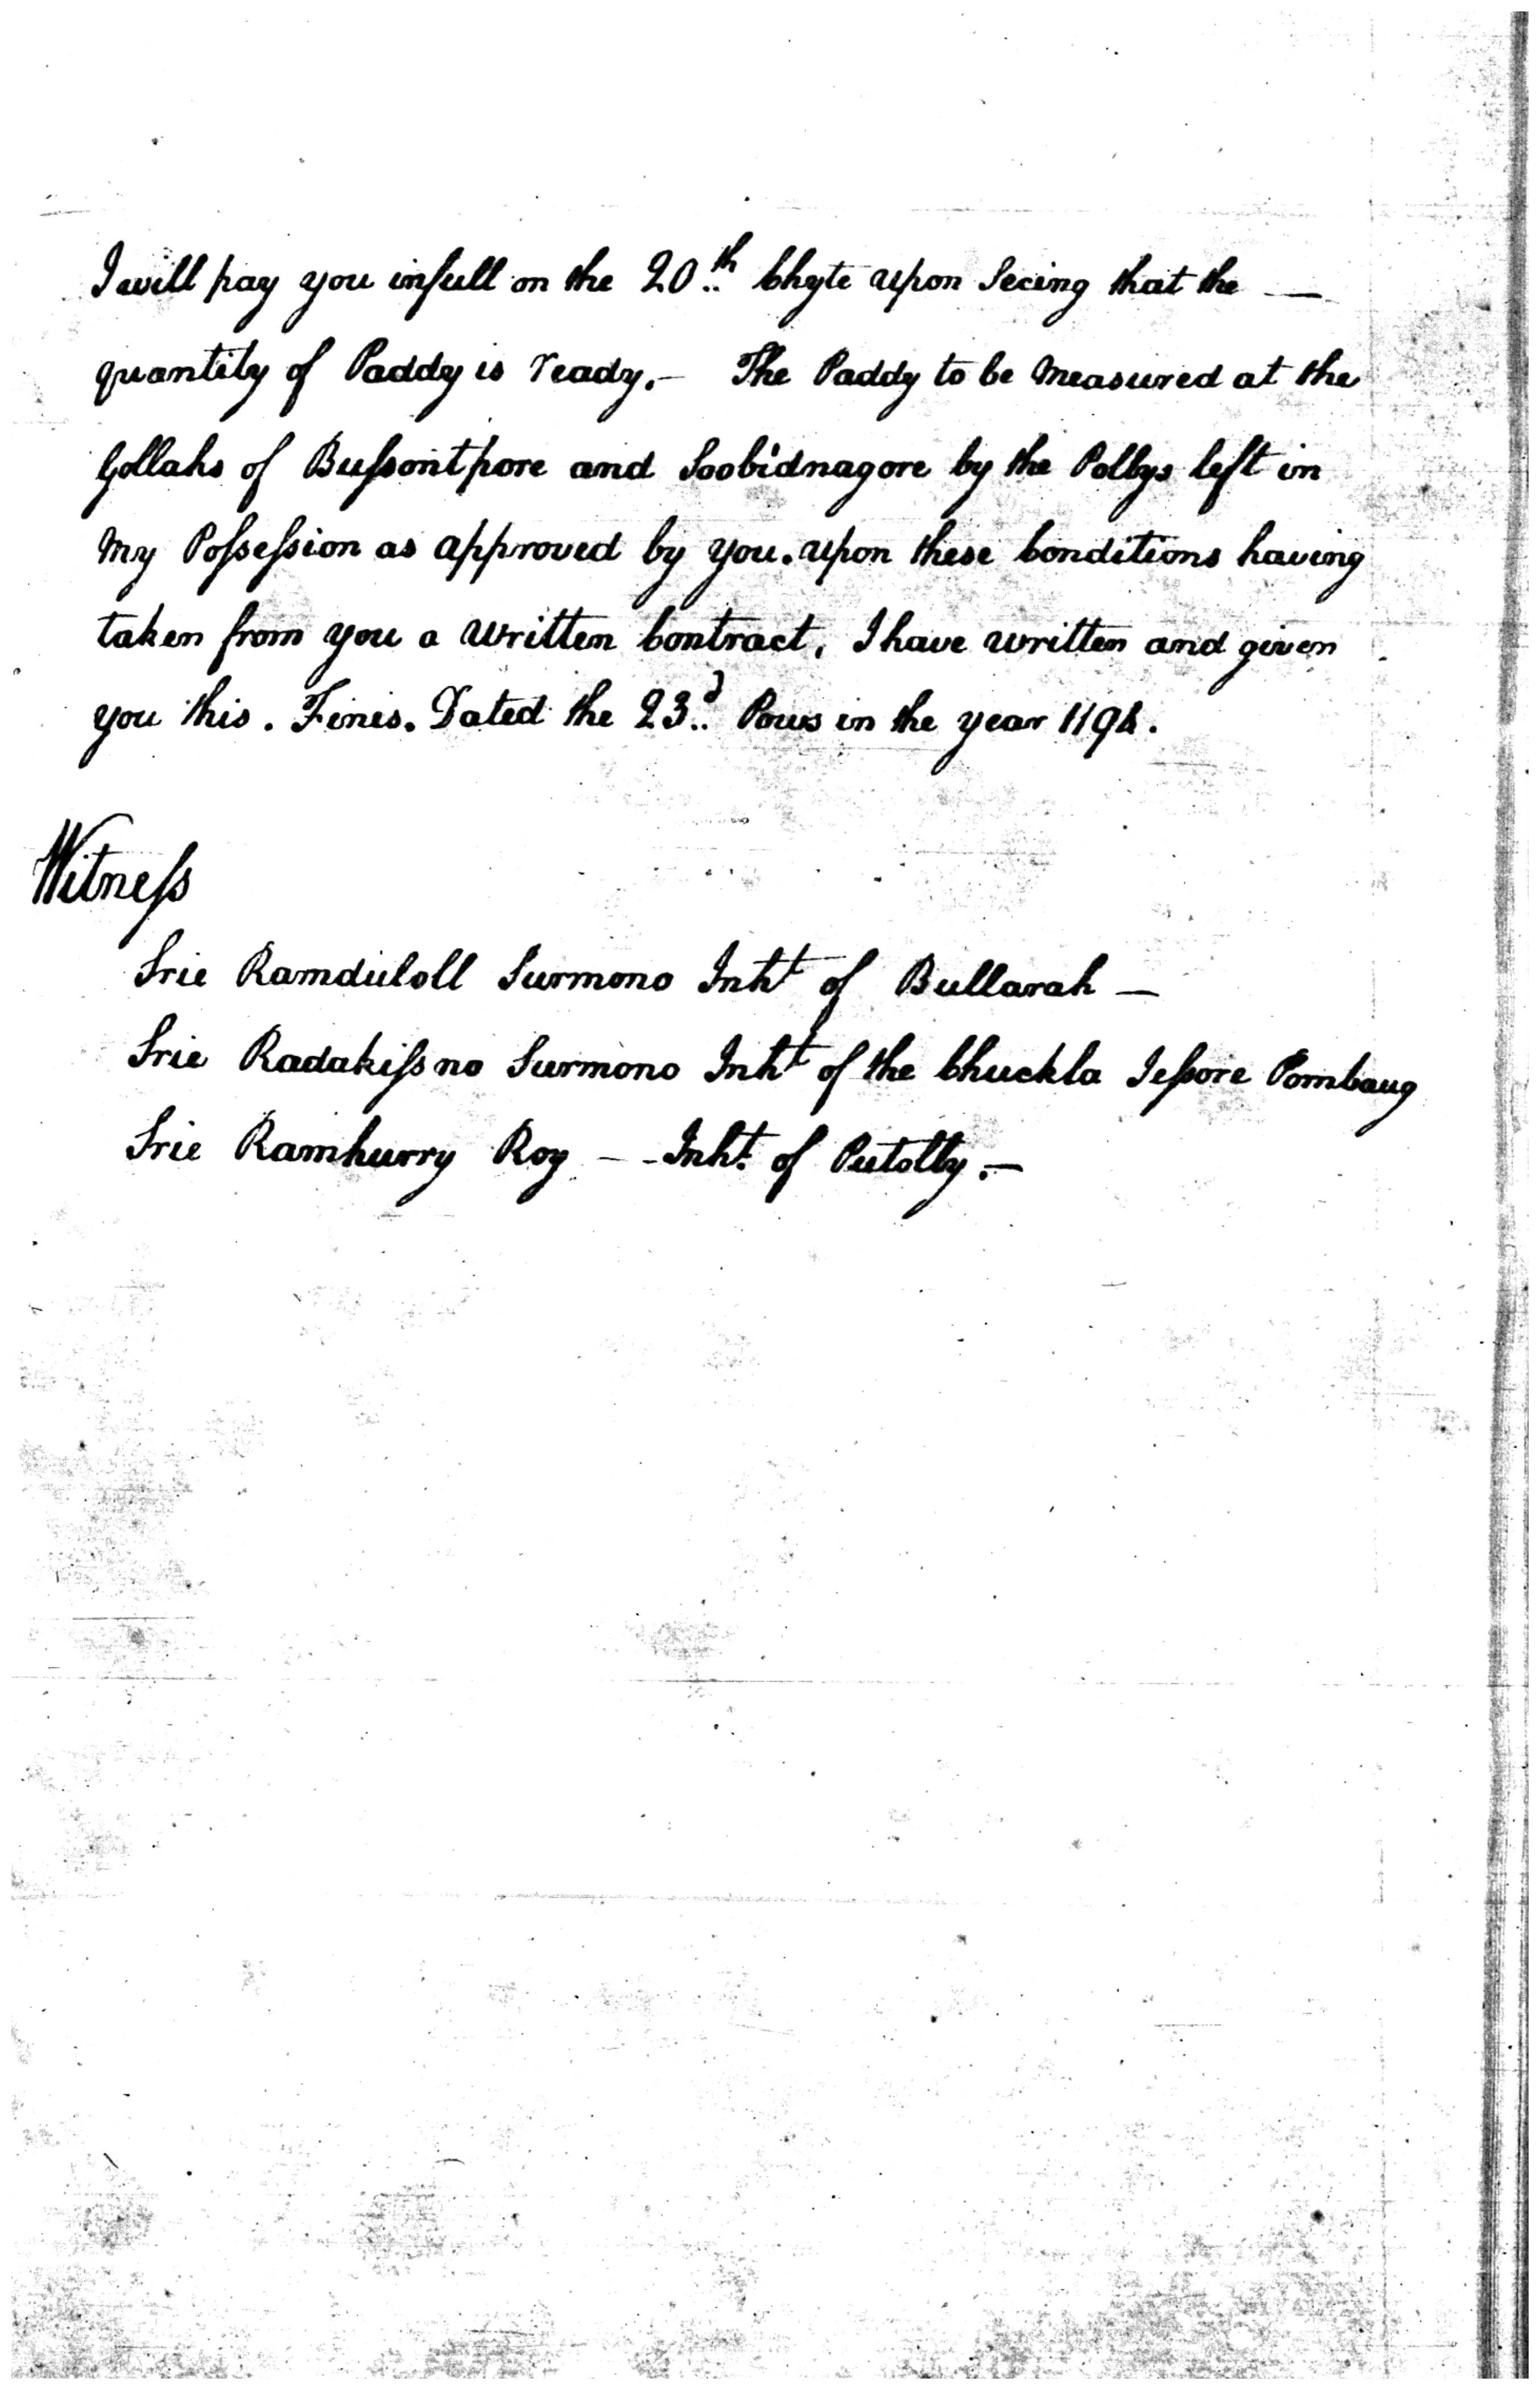 I will pay you in full on the 20th Chyte upon Seeing that the —
quantity of Paddy is ready. — The Paddy to be Measured at the
Gollahs of Bussontpore and Soobidnagore by the Pallys left in
My Possession as approved by you. upon these Conditions having
taken from you a Written Contract, I have written and given
you this. Finis. Dated the 23d Pous in the year 1194.
Witness
Srie Ramduloll Surmono Inht of Bullarah —
Srie Radakissno Surmono Inht of the Chuckla Jessore Pombaug
Srie Ramhurry Roy — - Inht. of Putolly. —